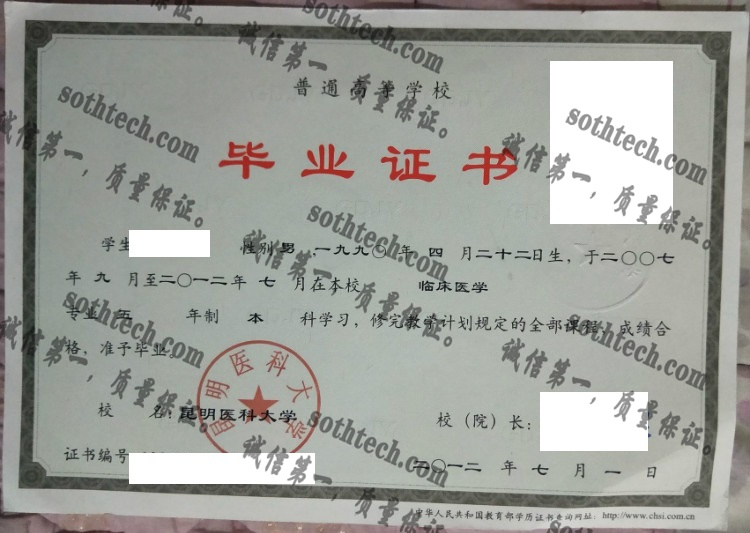 普通高等学校
毕业证书
学生 性别 男 ,一九九〇年 四 月二十二日生，于二〇〇七
年 九 月至二〇一二年 七 月在本校 临床医学
专业 五 年制 本 科学习，修完教学计划规定的全部课程，成绩合
格，准予毕业。
昆明医科大学
校 名：昆明医科大学 校（院）长：
证书编号
二〇一二 年 七 月 一 日
中华人民共和国教育部学历证书查询网址：http://www.chsi.com.cn
sothtech.com
诚信第一，质量保证。
sothtech.com
诚信第一，质量保证。
sothtech.com
诚信第一，质量保证。
sothtech.com
诚信第一，质量保证。
sothtech.com
诚信第一，质量保证。
sothtech.com
诚信第一，质量保证。
sothtech.com
诚信第一，质量保证。